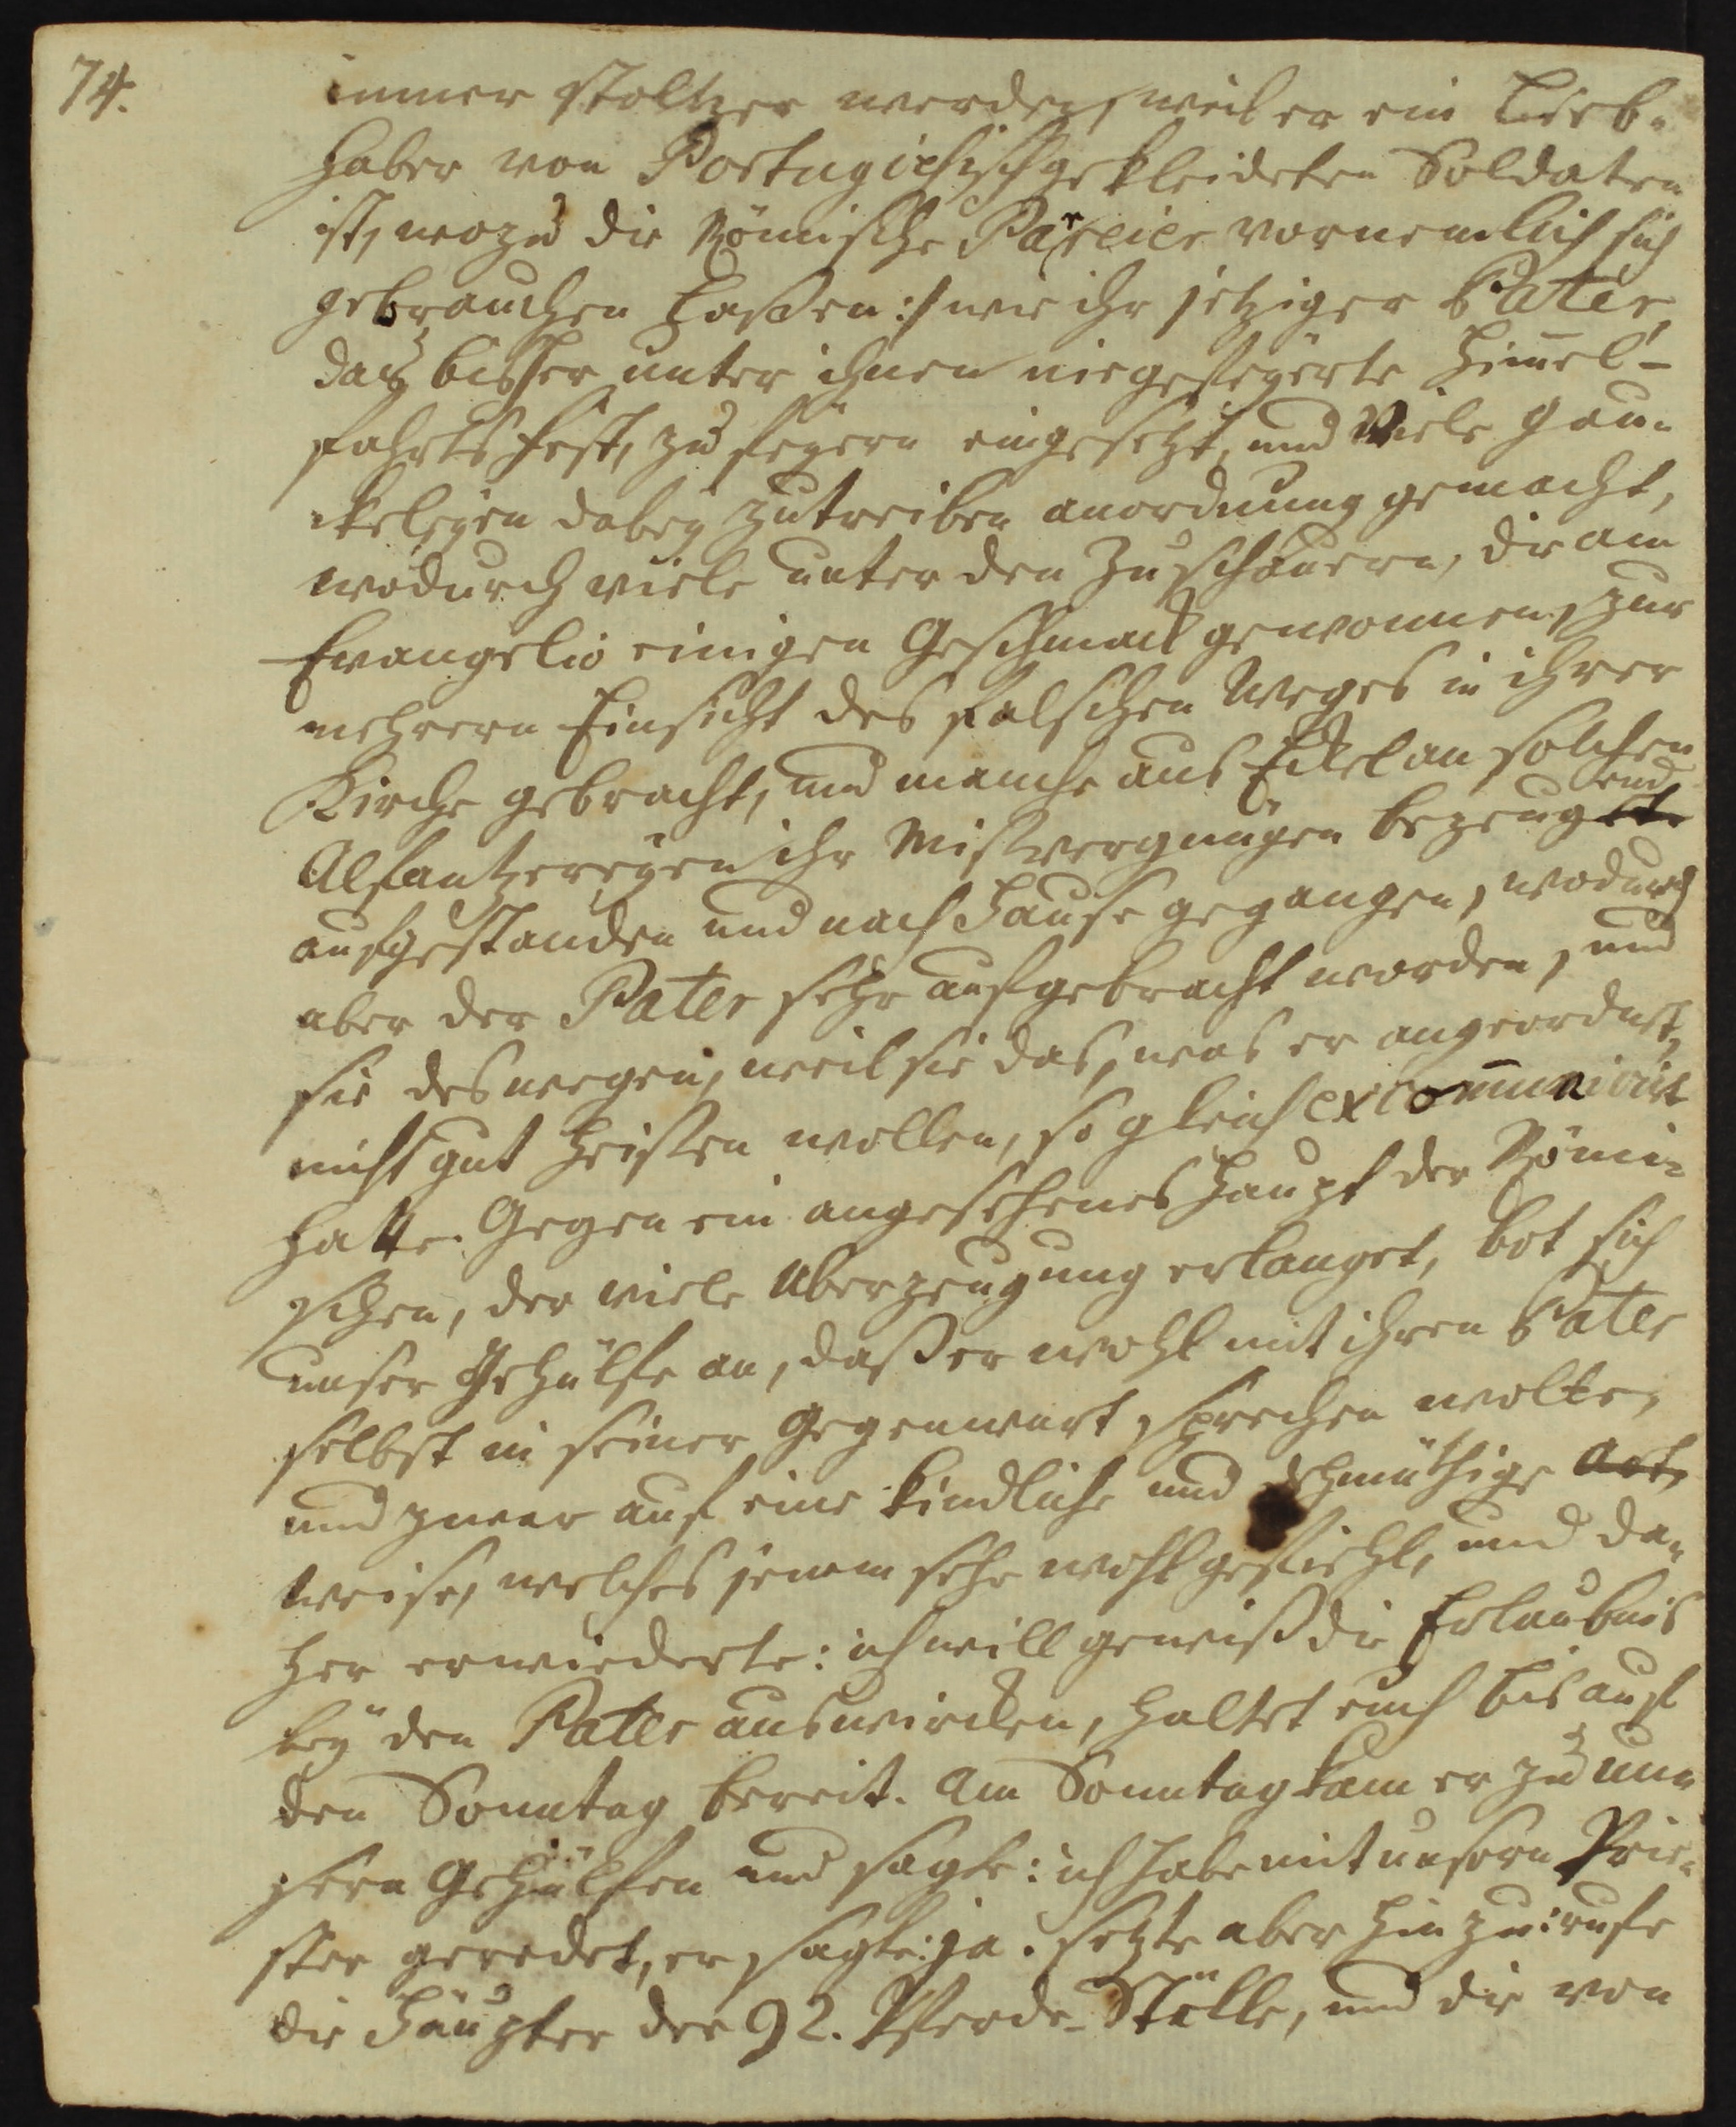 74.
immer stoltzer werden, weil er ein Lieb-
haber von Portugiesisch gekleideten Soldaten
ist, wozu die Römische Pareier vornemlich sich
gebrauchen laßen :/ wie ihr jetziger Pater,
das bisher unter ihnen nie gefeÿerte Himel-
fahrts fest, zu feÿern eingesetzt, und Viele Gau-
keleÿen dabeÿ zutreiben anordnung gemacht,
wodurch viele unter den Zuschauern, die am
Evangelio einigen Geschmack gewonnen, zur
mehrern Einsicht des falschen Weges in ihrer
Kirche gebracht, und manche aus Eckel an solchen
Alfantzereÿen ihr Misvergnügen bezeugend
aufgestanden und nach Hause gegangen, wodurch
aber der Pater sehr aufgebracht worden, und
sie deswegen, weil sie das, was er angeordnet,
nicht gut heissen wollen, so gleich excommunicirt
hatte. Gegen ein angesehenes Haupt der Römi-
schen, der viele Uberzeugung erlanget, bot sich
unser Gehülfe an, daß er wohl mit ihren Pater
selbst in seiner Gegenwart sprechen wolte,
und zwar auf eine kindliche und dehmüthige Art,
weise, welches jenem sehr wohl gefiehl, und da-
her erwiederte: ich will gewiß die Erlaubnis
beÿ den Pater auswircken, haltet euch bis auf
den Sonntag bereit. Am Sonntag kam er zu un-
sern Gehülfen und sagte: ich habe mit unsern Prie-
ster geredet, er sagte: ja. setzte aber hinzu: rufe
die Häupter der 92. Pferde-Ställe, und die von